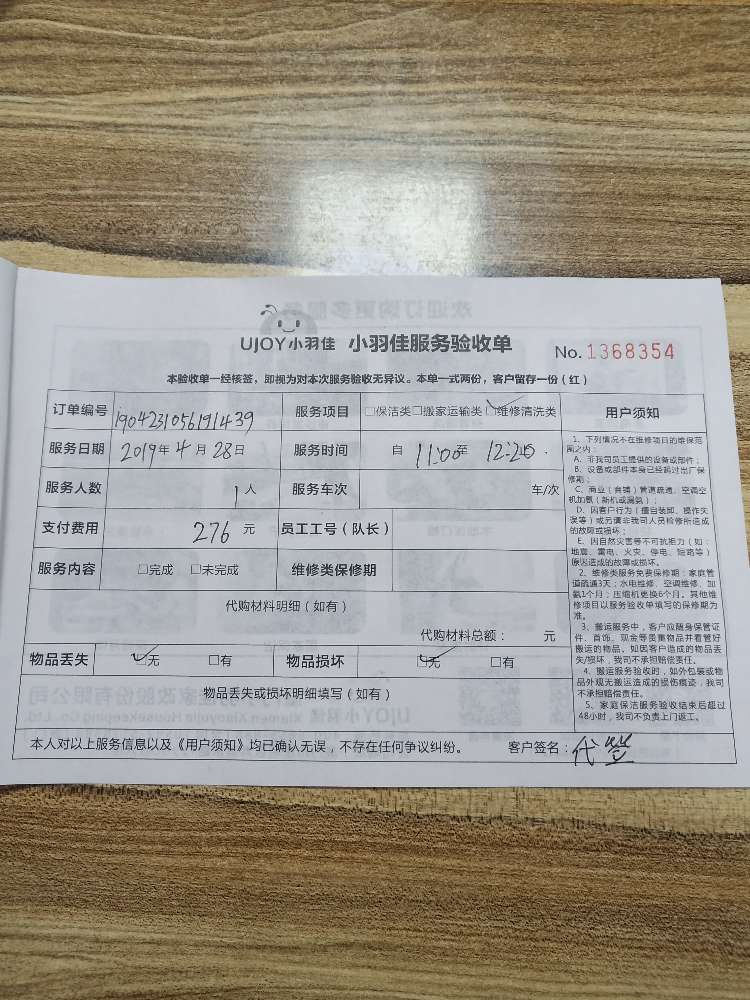 UJOY小羽佳 小羽佳服务验收单 No. 1368354
本验收单一经核签，即视为对本次服务验收无异议。本单一式两份，客户留存一份（红）
订单编号 1904231056191439 服务项目 □保洁类□搬家运输类□维修清洗类
服务日期 2019年4月28日 服务时间 自 11:00至 12:20
服务人数 1人 服务车次 车/次
支付费用 276 元 员工工号（队长）
服务内容 □完成 □未完成 维修类保修期
代购材料明细（如有）
代购材料总额： 元
物品丢失 □无 □有 物品损坏 □无 □有
物品丢失或损坏明细填写（如有）
本人对以上服务信息以及《用户须知》均已确认无误，不存在任何争议纠纷。 客户签名：代签
用户须知
1、下列情况不在维修项目的维保范
围之内：
A、非我司员工提供的设备或部件；
B、设备或部件本身已经超过出厂保
修期；
C、商业（商铺）管道疏通、空调空
机加氨（新机或漏氨）；
D、因客户行为（擅自装卸、操作失
误等）或另请非我司人员检修所造成
的故障或损坏；
E、因自然灾害等不可抗拒力（如：
地震、雷电、火灾、停电、短路等）
原因造成的故障或损坏。
2、维修类服务免费保修期：家庭管
道疏通3天；水电维修、空调维修、加
氨1个月；压缩机更换6个月。其他维
修项目以服务验收单填写的保修期为
准。
3、搬运服务中，客户应随身保管证
件、首饰、现金等贵重物品并看管好
搬运的物品。如因客户造成的物品丢
失/损坏，我司不承担赔偿责任。
4、搬运服务验收时，如外包装或物
品外观无搬运造成的损伤痕迹，我司
不承担赔偿责任。
5、家庭保洁服务验收结束后超过
48小时，我司不负责上门返工。